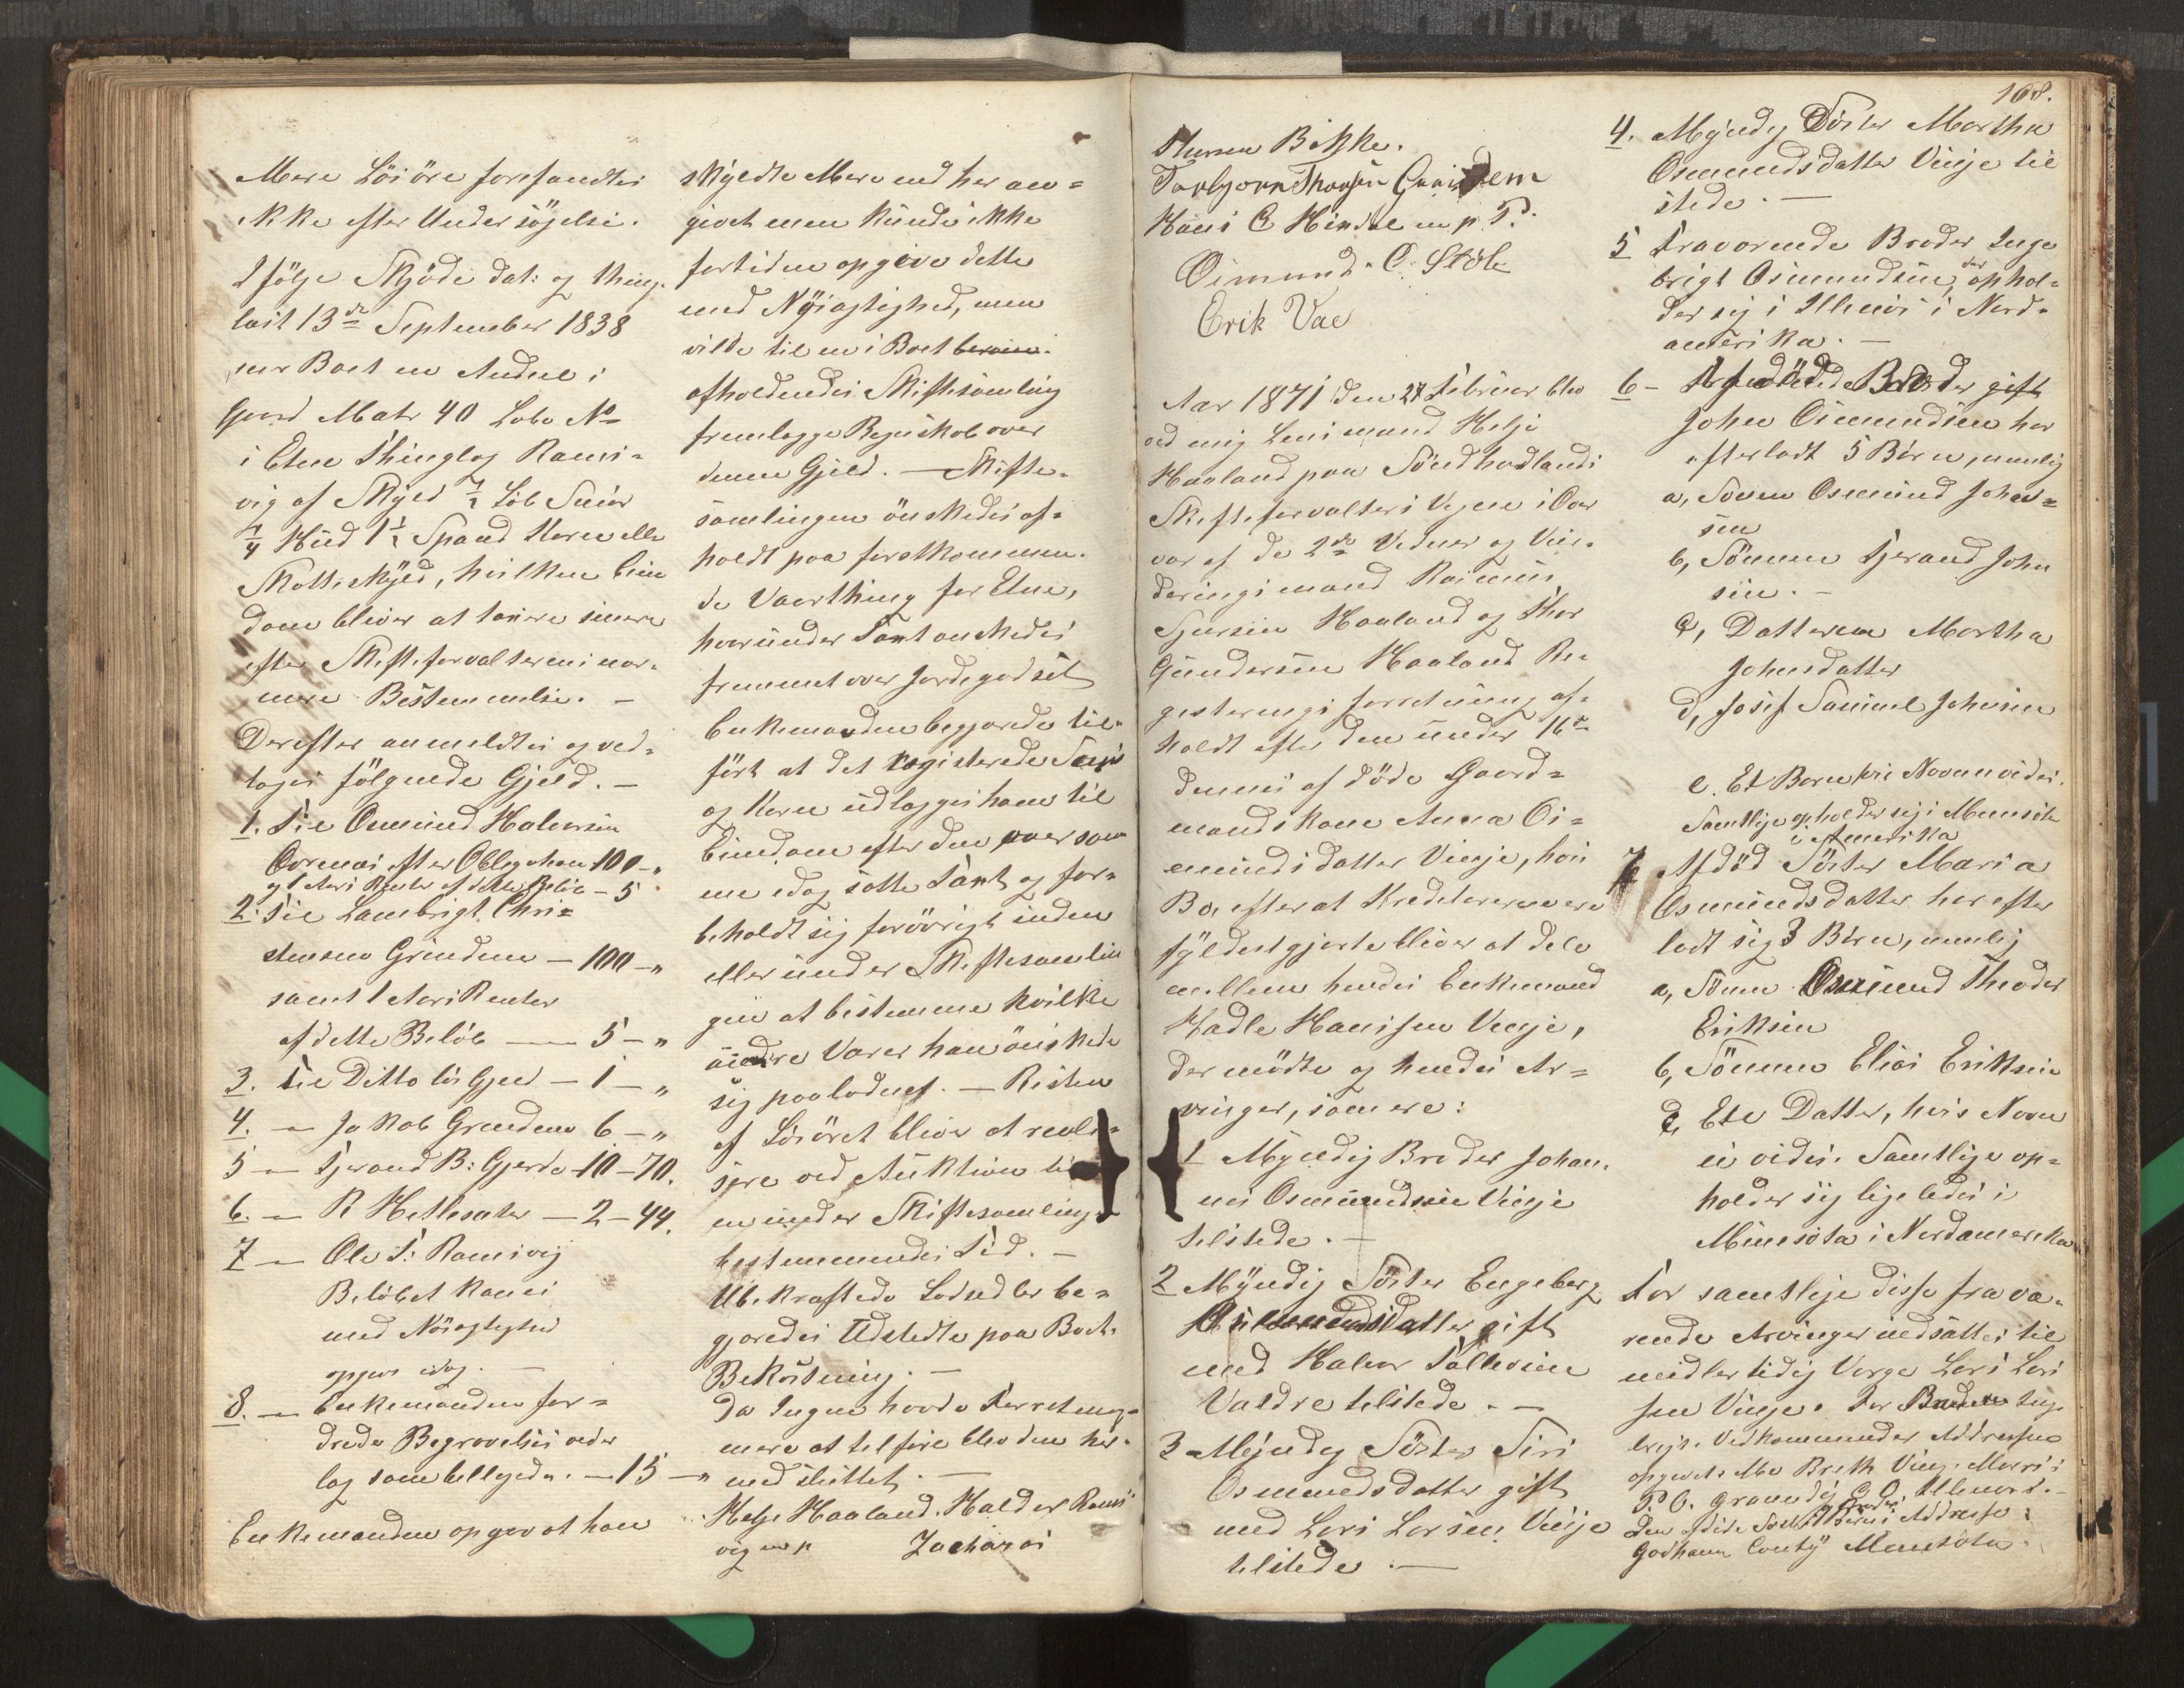 Mere Lösöre forefandtes
ikke efter Undersögelse.
I fölge Skjöde dat: og thing-
læst 13de September 1838
er Boet en Andeel i
Gaard Matr 40 Lobe No
i Etne Thinglag Rams-
vig af Skyld 1/2 Löb Smör
1/4 Hud 1 1/2 Spand Korn eller
Skatteskyld, hvilken Eien
dom bliver at taxere senere
efter Skifteforvalterens nær-
mere Bestemmelse. -
Derefter anmeldtes og ved-
toges fölgende Gjeld. -
1. Til Osmund Halvorsen
efter Obligation 100 - "
og 1 Aars Renter af dette Belöb - 5
2. Til Lambrigt Chri-
stensen Grindem - 100 - "
samt 1 Aars Renter
af dette Belöb - 5 - "
3. Til Ditto lös Gjeld - 1 - "
4. - Jakob Grindem 6 - "
5 - Tjerand B: Gjerde - 10 - 70.
6. - R Hettesæter - 2 - 44.
7 - Ole T: Ramsvig
Belöbet kan ei
med Nöiagtighed
opgives idag. -
8. - Enkemanden for-
drede Begravelses veder
lag som billigedes. - 15 - "
Enkemanden opgav at han
skyldte Mere end her an-
givet men kunde ikke
fortiden opgive dette
med Nöiagtighed, men
vilde til en i Boet
afholdendes Skiftesamling
fremlægge Regnskab over
denne Gjeld. - Skifte-
samlingen önskedes af-
holdt paa forstkommen-
de Vaarthing for Etne,
hvorunder Taxt önskedes
fremmet over Jordegodset
Enkemanden begjærede til-
fört at det registerede
og Korn udlægges ham til
Eiendom efter den over samme
idag satte Taxt og for-
beholdt sig forövrigt inden
eller under Skiftesamlin
gen at bestemme hvilke
andre Varer han önskede
sig paalodnet. - Resten
af Lösöret bliver at reali-
sere ved Auktion til
en under Skiftesamlingen
bestemmendes Tid. -
Ubekræftede Lodsedler be-
gjæredes Udstedte paa Boets
Bekostning. -
Da Ingen havde Forretning-
mere at tilföre blev den her-
med sluttet. -
Helje Haaland. Haldor Rams
vig m p Zacharias
168.
Thorbjörn Thorsen
Hans C Hindal m p P.
Oimund. C. Stöle
Erik Vae
Aar 1871 den 27 Februar blev
ved mig Lensmand Helje
Haaland paa Söndhordlands
Skifteforvalters Vegne i Over
vær af de 2de Vidner og Vur-
deringsmænd Rasmus
Sjursen Haaland og Thor
Gundersen Haaland Re-
gisterings forretning af-
holdt efter den under 16de
dennes af döde Gaard-
mandskone Anna Os-
mundsdatter Vinje, hvis
Bo, efter at Kreditorerne ere
fyldestgjorte bliver at dele
mellem hendes Enkemand
Hadle Hansen Vinje,
der mödte og hendes Ar-
vinger, som ere:
1 Myndig Broder Johan-
nes Osmundsen Vinje
tilstede. -
2 Myndig Söster Engeberg
Osmundsdatter gift
med Halvor Tollevsen
Valdre tilstede. -
3 Myndig Söster Siri
Osmundsdatter gift
med Lars Larsen Vinje
tilstede. -
4. Myndig Söster Martha
Osmundsdatter Vinje til
stede. -
5 Fraværende Broder Inge
brigt Osmundsen, der ophol-
der sig i Illinois i Nord-
amerika. -
6 - Afdöde Broder gift
John Osmundsen har
efterladt 5 Börn, nemlig
a, Sönnen Osmund Johns-
sen
b, Sönnen Tjerand John
sen. -
c, Datteren Martha
Johnsdatter
d, Josef Samuel Johnsen
e. Et Barn hvis Navn ei vides.
Samtlige opholder sig i Minnesota
i Amerika
7 Afdöd Söster Maria
Osmundsdatter har efter
ladt sig 3 Börn, nemlig
a, Sönnen Osmund Theodor
Eriksen
b, Sönnen Elias Eriksen
c, Een Datter, hvis Navn
ei vides. Samtlige op-
holder sig ligeledes i
Minesota i Nordamerika
For samtlige disse fravæ-
rende Arvinger indsattes til
midlertidig Værge Lars Lars
sen Vinje. For Broderen Inge
brigt. Vedkommendes Addresse
opgivet. Vinje Morris
P. O. Grundy C. O. Illinois. -
Den afdöde Börns Addresse:
Godhaun County Minesota.